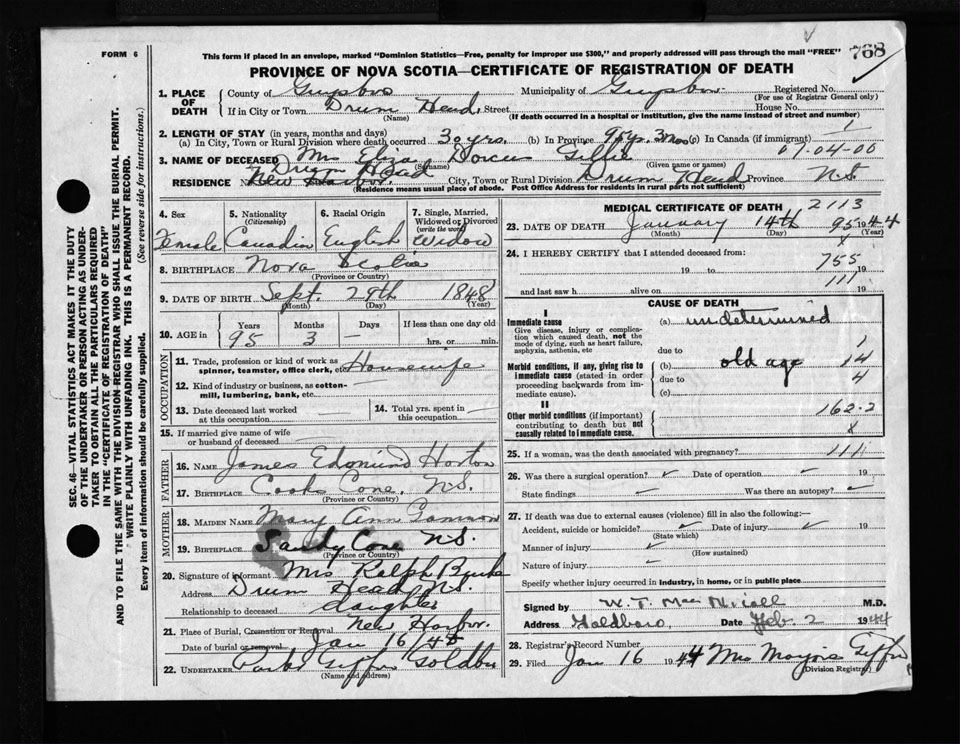 FORM 6
This form if placed in an envelope, marked "Dominion Statistics—Free, penalty for improper use $300," and properly addressed will pass through the mail "FREE"
768
PROVINCE OF NOVA SCOTIA—CERTIFICATE OF REGISTRATION OF DEATH
SEC. 46—VITAL STATISTICS ACT MAKES IT THE DUTY
OF THE UNDERTAKER OR PERSON ACTING AS UNDER-
TAKER TO OBTAIN ALL THE PARTICULARS REQUIRED
IN THE "CERTIFICATE OF REGISTRATION OF DEATH"
AND TO FILE THE SAME WITH THE DIVISION-REGISTRAR WHO SHALL ISSUE THE BURIAL PERMIT.
WRITE PLAINLY WITH UNFADING INK. THIS IS A PERMANENT RECORD.
Every item of information should be carefully supplied. (See reverse side for instructions.)
1. PLACE OF DEATH
County of Guysboro Municipality of Guysboro Registered No.
(For use of Registrar General only)
If in City or Town Drum Head Street House No.
(Name) (If death occurred in a hospital or institution, give the name instead of street and number)
2. LENGTH OF STAY (in years, months and days)
(a) In City, Town or Rural Division where death occurred 30 yrs. (b) In Province 95 y. 3 mos (c) In Canada (if immigrant) 1
3. NAME OF DECEASED Mrs Eliza Dorcus Giffin 07-04-00
(Surname) (Given name or names)
Drum Head
RESIDENCE No. New Harbor. City, Town or Rural Division Drum Head Province N.S.
(Residence means usual place of abode. Post Office Address for residents in rural parts not sufficient)
4. Sex Female
5. Nationality (Citizenship) Canadian
6. Racial Origin English
7. Single, Married, Widowed or Divorced (write the word) Widow
8. BIRTHPLACE Nova Scotia
(Province or Country)
9. DATE OF BIRTH Sept. 29th 1848
(Month) (Day) (Year)
10. AGE in Years 95 Months 3 Days — If less than one day hrs. or min.
OCCUPATION
11. Trade, profession or kind of work as spinner, teamster, office clerk, etc. Housewife
12. Kind of industry or business, as cotton-mill, lumbering, bank, etc.
13. Date deceased last worked at this occupation
14. Total yrs. spent in this occupation
15. If married give name of wife or husband of deceased
FATHER
16. NAME James Edmund Horton
17. BIRTHPLACE Cook Cove, N.S.
(Province or Country)
MOTHER
18. MAIDEN NAME Mary Ann
19. BIRTHPLACE Sandy Cove N.S.
(Province or Country)
20. Signature of informant Mrs Ralph Burke
Address Drum Head N.S.
Relationship to deceased daughter
21. Place of Burial, Cremation or Removal New Harbor.
Date of burial or removal Jan 16
22. UNDERTAKER Giffin Goldboro
(Name and address)
MEDICAL CERTIFICATE OF DEATH 2113
23. DATE OF DEATH January 14th 95 1944
(Month) (Day) (Year)
24. I HEREBY CERTIFY that I attended deceased from: x
19 to 755 19
and last saw h alive on 111 19
CAUSE OF DEATH
I
Immediate cause
Give disease, injury or complication which caused death, not the mode of dying, such as heart failure, asphyxia, asthenia, etc
(a) undetermined
due to 1
Morbid conditions, if any, giving rise to immediate cause (stated in order proceeding backwards from immediate cause).
(b) old age 14
due to 4
(c)
II
Other morbid conditions (if important) contributing to death but not causally related to immediate cause.
162-2
x
25. If a woman, was the death associated with pregnancy? 111
26. Was there a surgical operation? Date of operation 19
State findings Was there an autopsy?
27. If death was due to external causes (violence) fill in also the following:—
Accident, suicide or homicide? Date of injury 19
(State which)
Manner of injury
(How sustained)
Nature of injury
Specify whether injury occurred in industry, in home, or in public place
Signed by M.D.
Address Goldboro, Date Feb. 2 1944
28. Registrar's Record Number
29. Filed Jan 16 1944 Mrs Giffin
(Division Registrar)